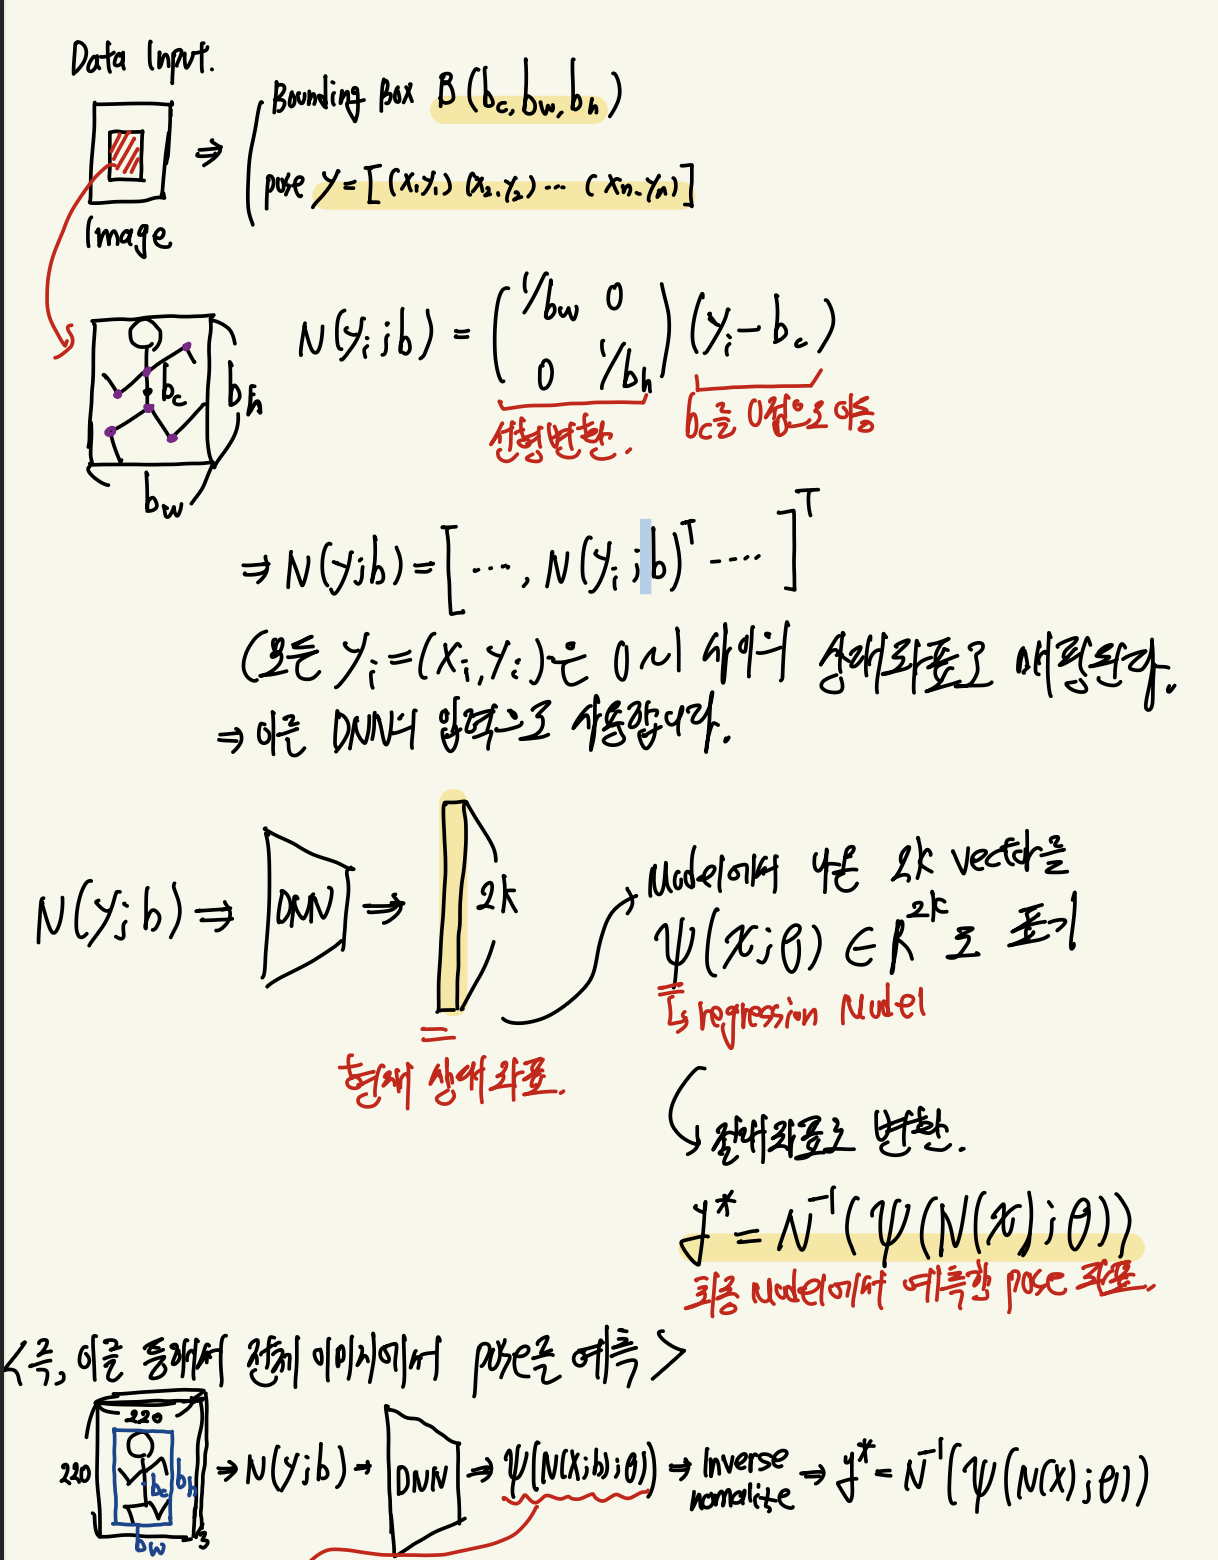 Data Input.
Bounding Box B(b_c, b_w, b_h)
pose y = [(x₁, y₁) (x₂, y₂) ... (x_n, y_n)]
Image
N(y_i ; b) = (1/b_w 0 0 1/b_h) (y_i - b_c)
b_c
b_h
b_w
선형변환.
b_c를 0점으로 이동
⇒ N(y;b) = [ ...., N(y_i ; b)^T ..... ]^T
(모든 y_i = (x_i, y_i)는 0~1 사이의 상대좌표로 매핑된다.
⇒ 이를 DNN의 입력으로 사용합니다.
N(y;b) ⇒ DNN ⇒ 2k
Model에서 나온 2k vector를
ψ(x;θ) ∈ R^2k로 표기
↳ regression Model
현재 상대좌표.
절대좌표로 변환.
y* = N⁻¹(ψ(N(x);θ))
최종 Model에서 예측한 pose 좌표.
<즉, 이를 통해서 전체 이미지에서 pose를 예측>
220
220
b_c
b_h
b_w
3
→ N(y;b) → DNN → ψ(N(x;b);θ) → Inverse normalize → y* = N⁻¹(ψ(N(x);θ))